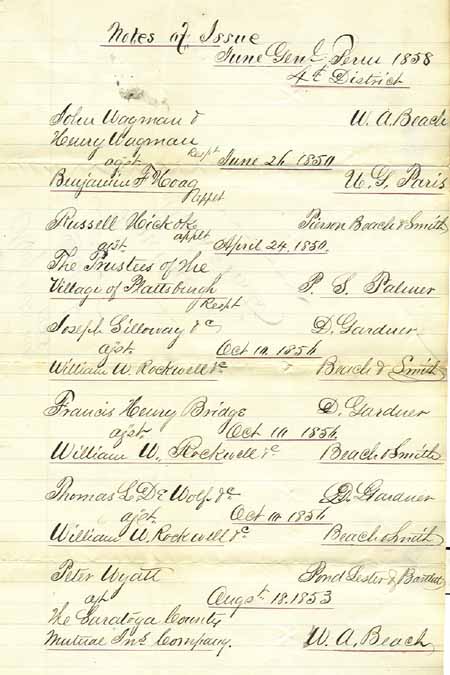 Notes of Issue
June Genl Term 1858
4th District
John Wagman & W. A. Beach
Henry Wagman
agst. Respt June 26 1850
Benjamin F Hoag U. G. Paris
Applt
Russell Hickok Pierson Beach & Smith
agst. applt April 24. 1850.
The Trustees of the
Village of Plattsburgh P. S. Palmer
Respt
Joseph Gilloway &c D. Gardner
agst. Oct 10. 1856
William W. Rockwell &c Beach & Smith
Francis Henry Bridge D. Gardner
agst. Oct 10 1856.
William W. Rockwell &c. Beach & Smith
Thomas L. De Wolf &c D. Gardner
agst. Oct 10 1856
William W. Rockwell &c. Beach & Smith
Peter Wyatt Pond Lester & Bartlett
agt Augst. 18. 1853
The Saratoga County
Mutual Ins Company. W. A. Beach